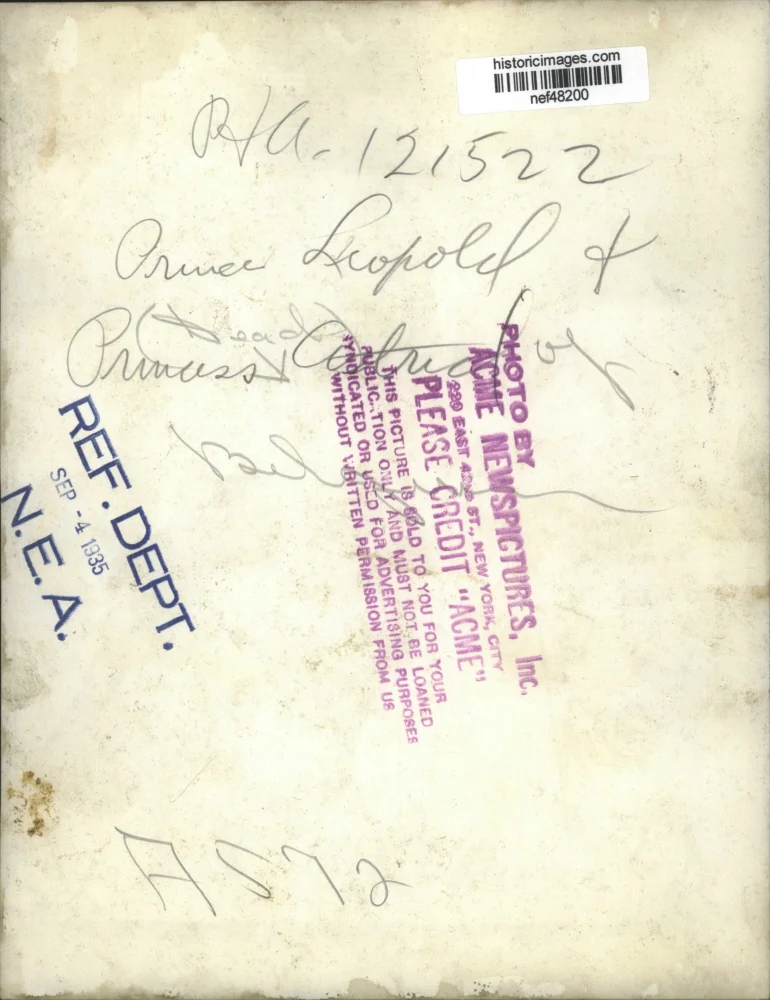 historicimages.com
nef48200
121522
Prince Leopold &
(Dead)
Princess Astrid of
Belgium
PHOTO BY
ACME NEWSPICTURES, Inc.
220 EAST 42ND ST., NEW YORK, CITY
PLEASE CREDIT "ACME"
THIS PICTURE IS SOLD TO YOU FOR YOUR
PUBLIC..TION ONLY AND MUST NOT BE LOANED
SYNDICATED OR USED FOR ADVERTISING PURPOSES
WITHOUT WRITTEN PERMISSION FROM US
REF. DEPT.
SEP - 4 1935
N.E.A.